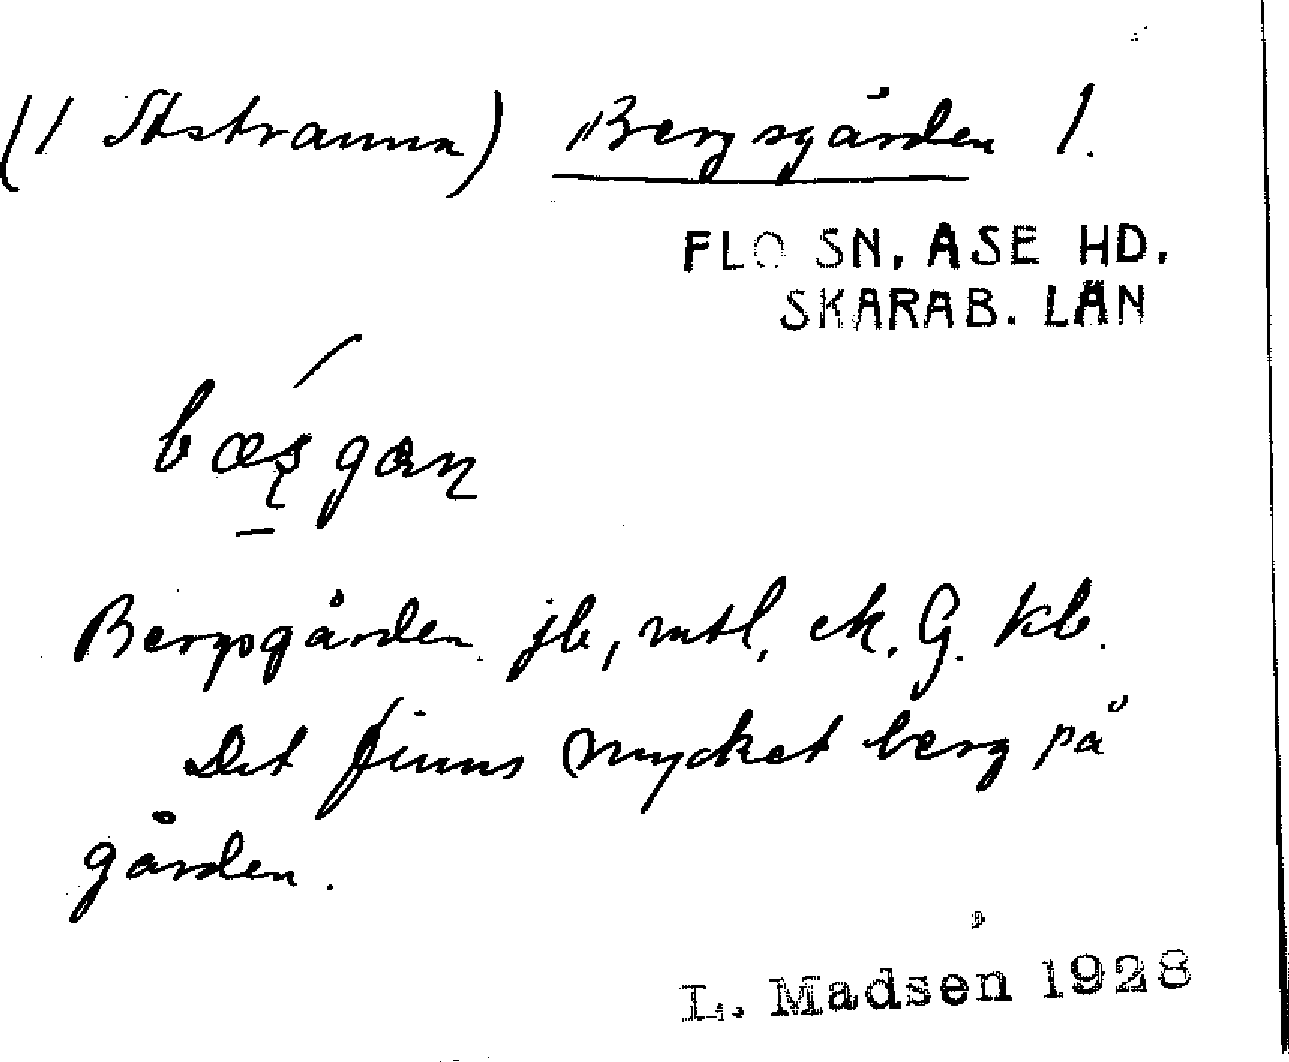 (1 Ststranna) Bergsgården 1.
FLO SN. ASE HD.
SKARAB. LÄN
Bergsgården jb, mtl, ek. G. kb.
Det finns mycket berg på
gården.
L. Madsen 1928